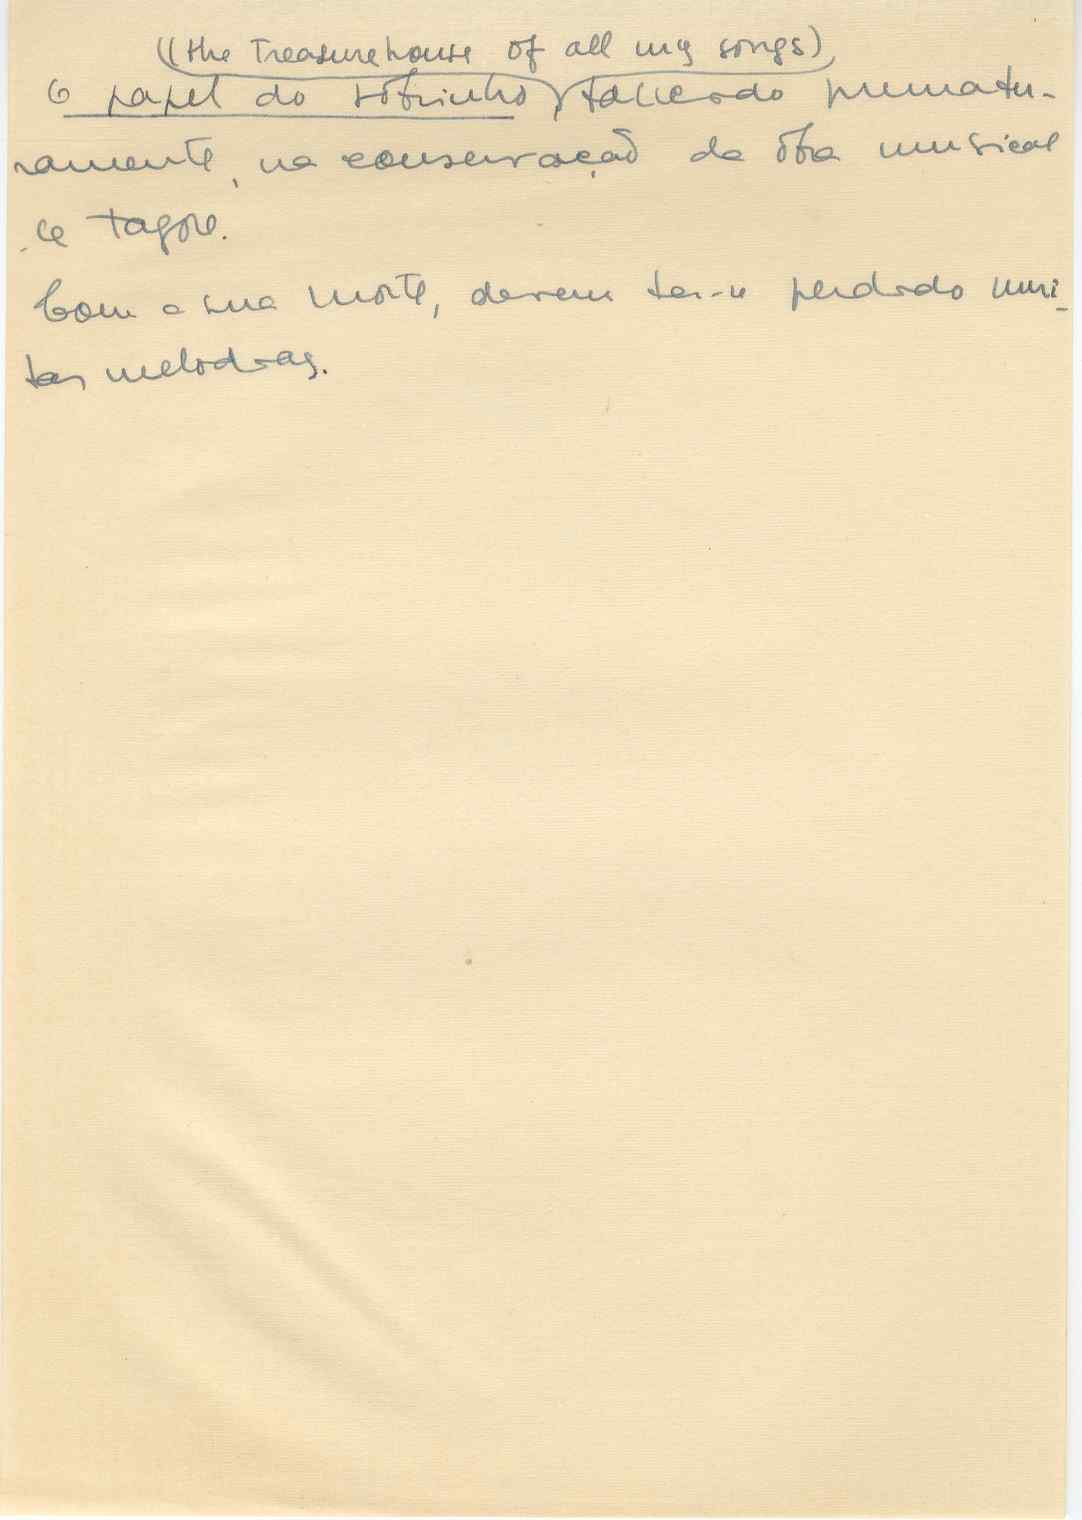 ((the Treasurehouse of all my songs)
O papel do sobrinho, falecido prematu-
ramente, na conservação da obra musical
de Tagore.
Com a sua morte, devem ter-se perdido mui-
tas melodias.